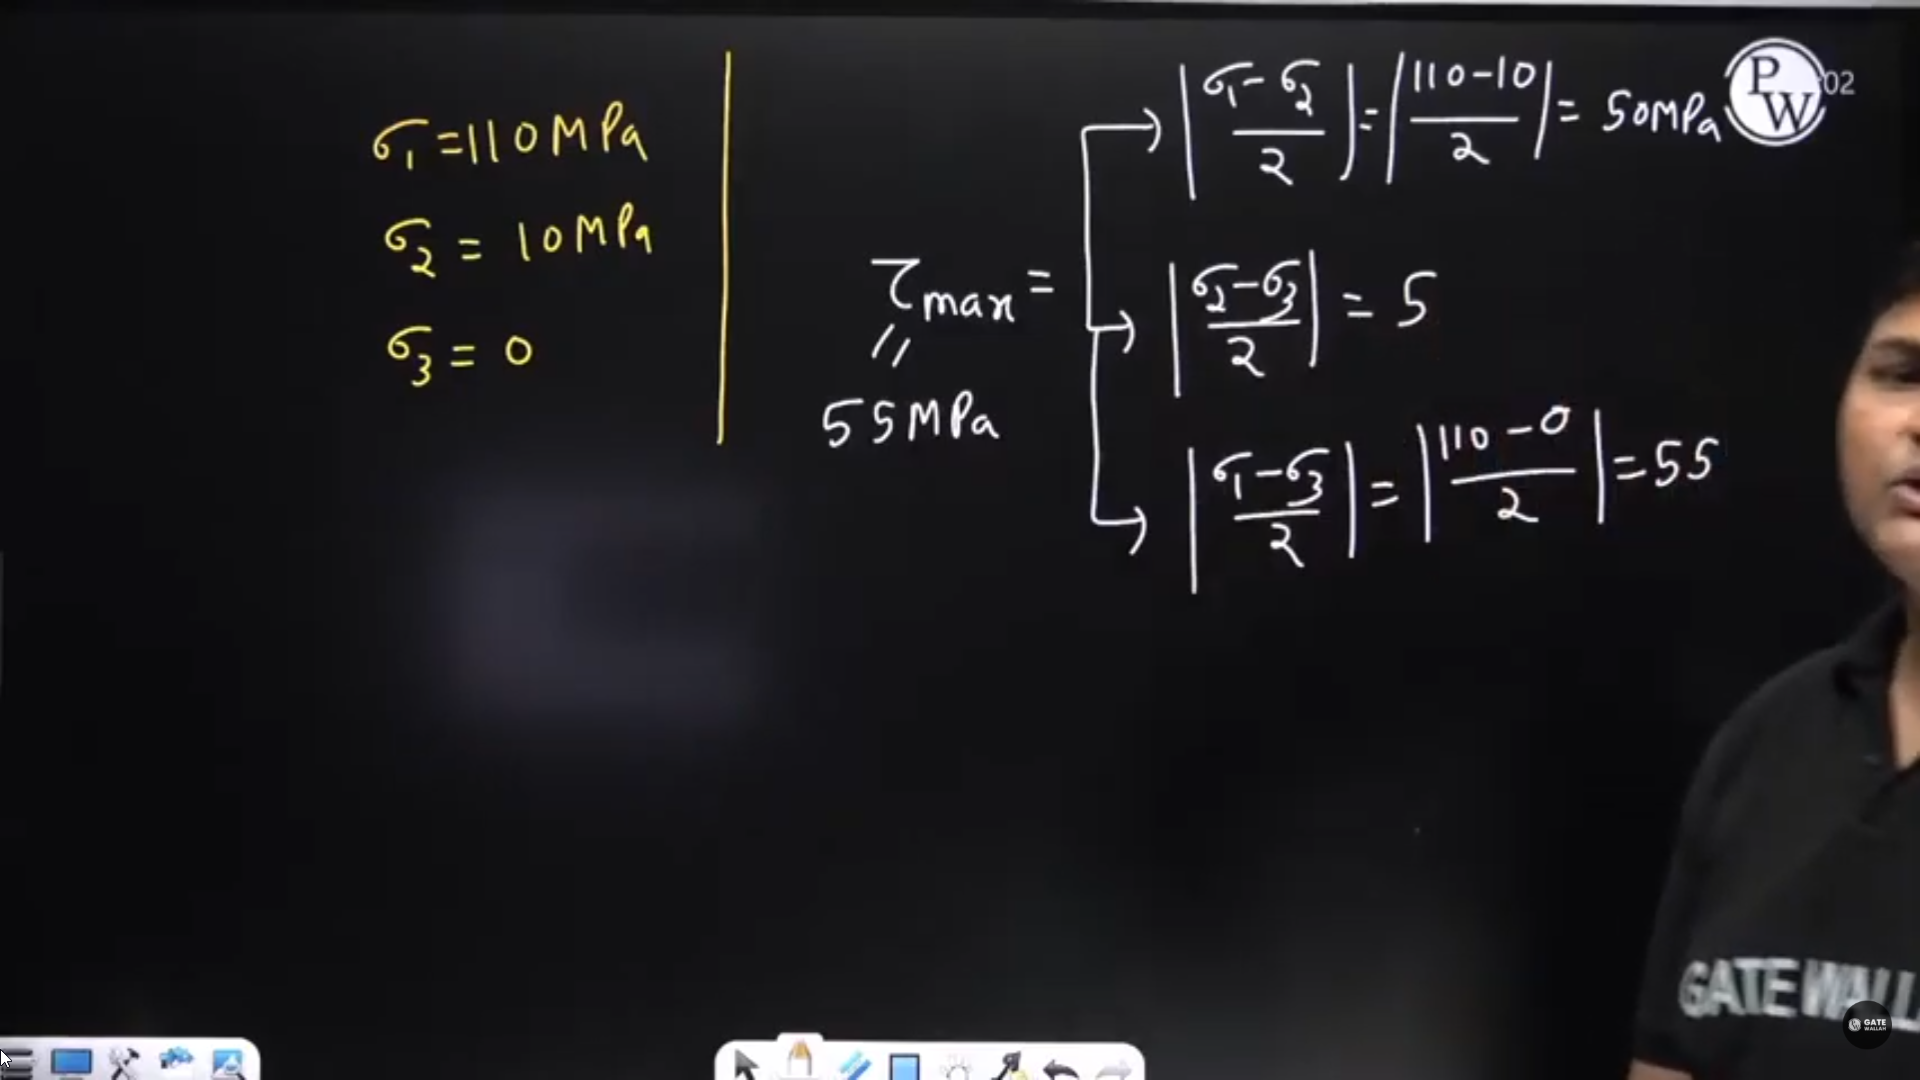 σ₁ = 110 MPa
σ₂ = 10 MPa
σ₃ = 0
τmax =
||
55 MPa
|(σ₁ - σ₂)/2| = |(110 - 10)/2| = 50 MPa
|(σ₂ - σ₃)/2| = 5
|(σ₁ - σ₃)/2| = |(110 - 0)/2| = 55
PW
02
GATE WALL
GATE
WALLAH